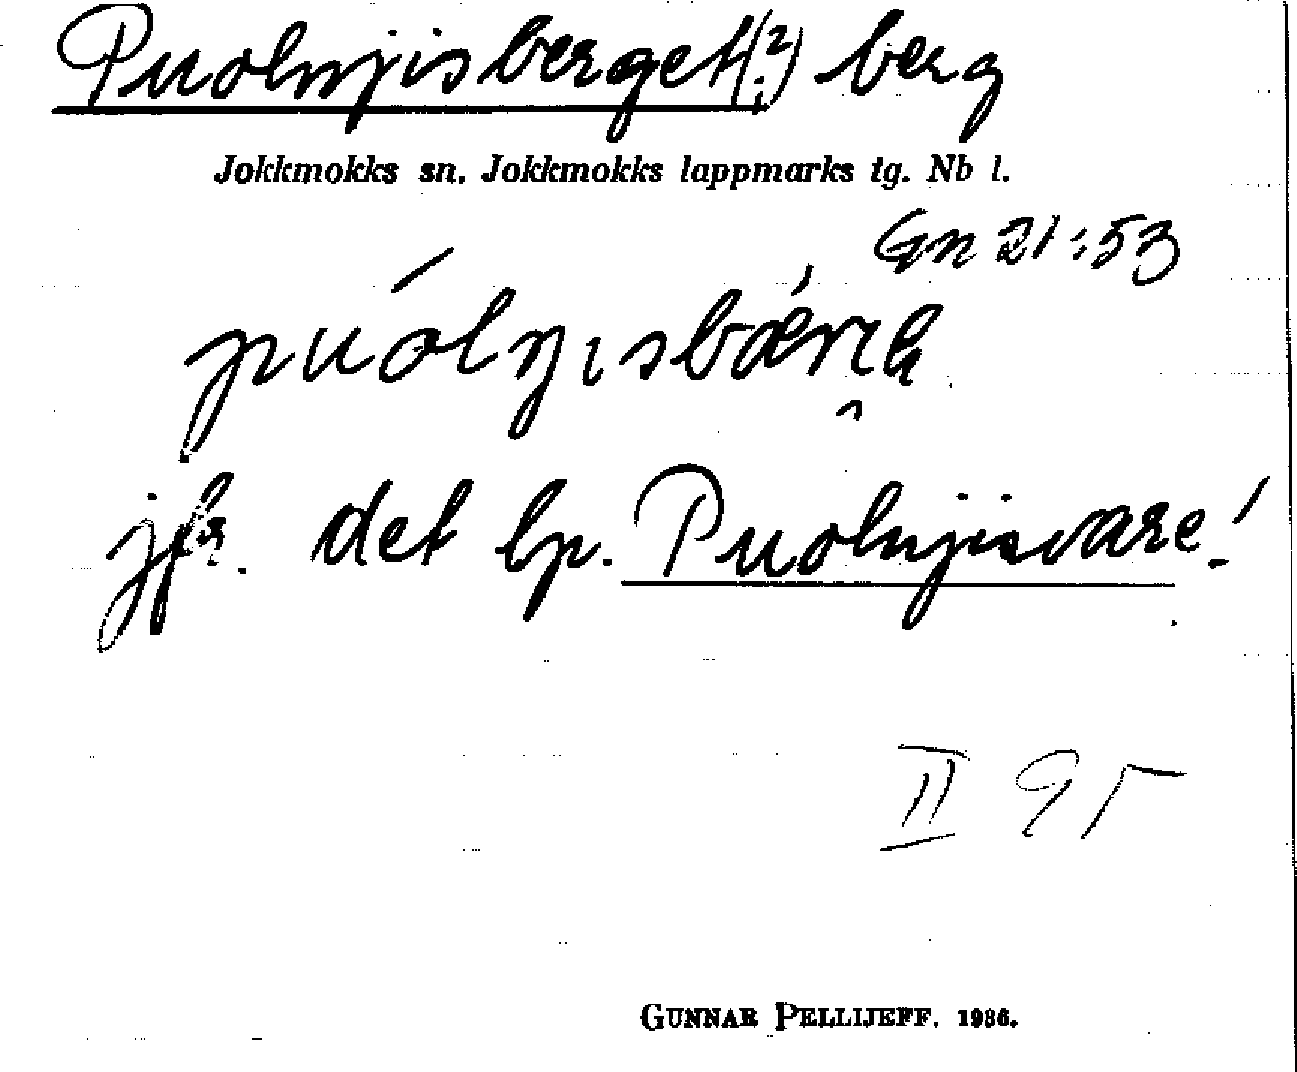 Puolnjisberget(?) berg
Jokkmokks sn. Jokkmokks lappmarks tg. Nb l.
Gn 21:53
jfr. det lp. Puolnjisvare!
II 95
GUNNAR PELLIJEFF. 1986.